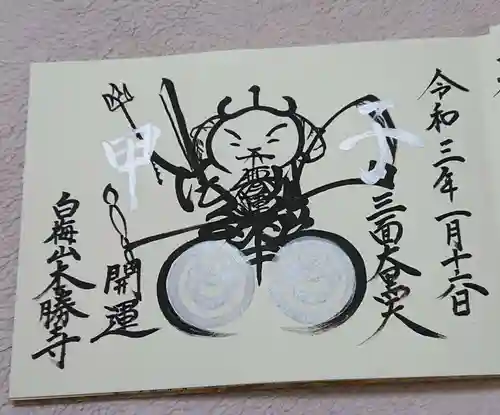 令和三年一月十六日
三面大黒天
甲子
開運
白梅山
勝寺